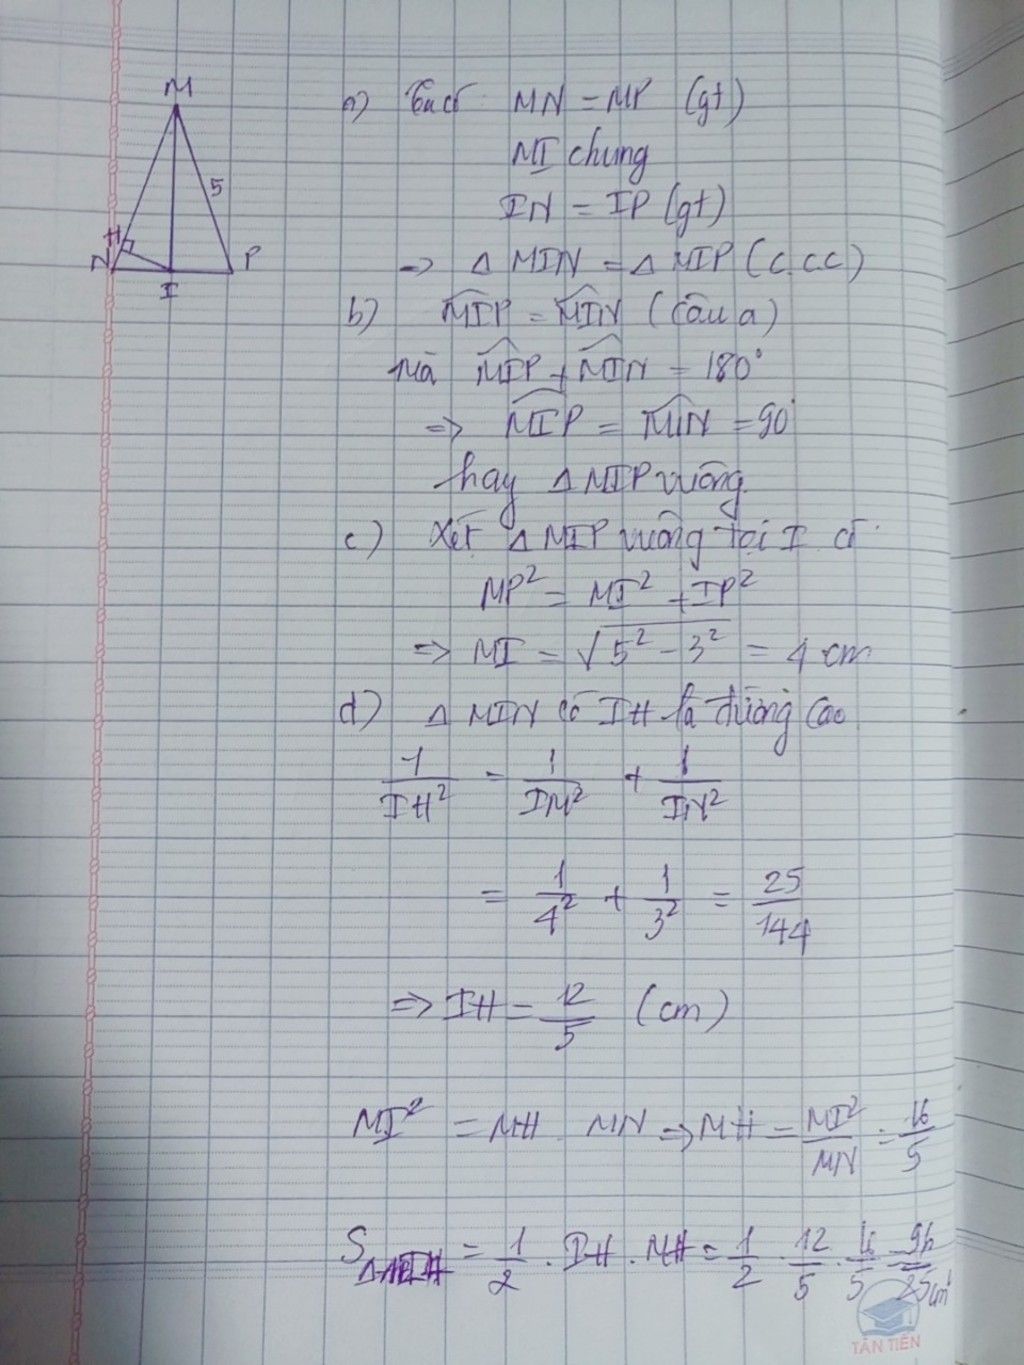 M
5
H
N
I
P
a) Ta có MN = MP (gt)
MI chung
IN = IP (gt)
=> Δ MIN = Δ MIP (c.c.c)
b) \widehat{MIP} = \widehat{MIN} (câu a)
Mà \widehat{MIP} + \widehat{MIN} = 180°
=> \widehat{MIP} = \widehat{MIN} = 90°
hay Δ MIP vuông.
c) Xét Δ MIP vuông tại I có
MP² = MI² + IP²
=> MI = √(5² - 3²) = 4 cm
d) Δ MIN có IH là đường cao
1/IH² = 1/IM² + 1/IN²
= 1/4² + 1/3² = 25/144
=> IH = 12/5 (cm)
MI² = MH MN => MH = MI²/MN = 16/5
S = 1/2 . IH . MH = 1/2 . 12/5 . 16/5 = 96/25 cm²
TÂN TIẾN